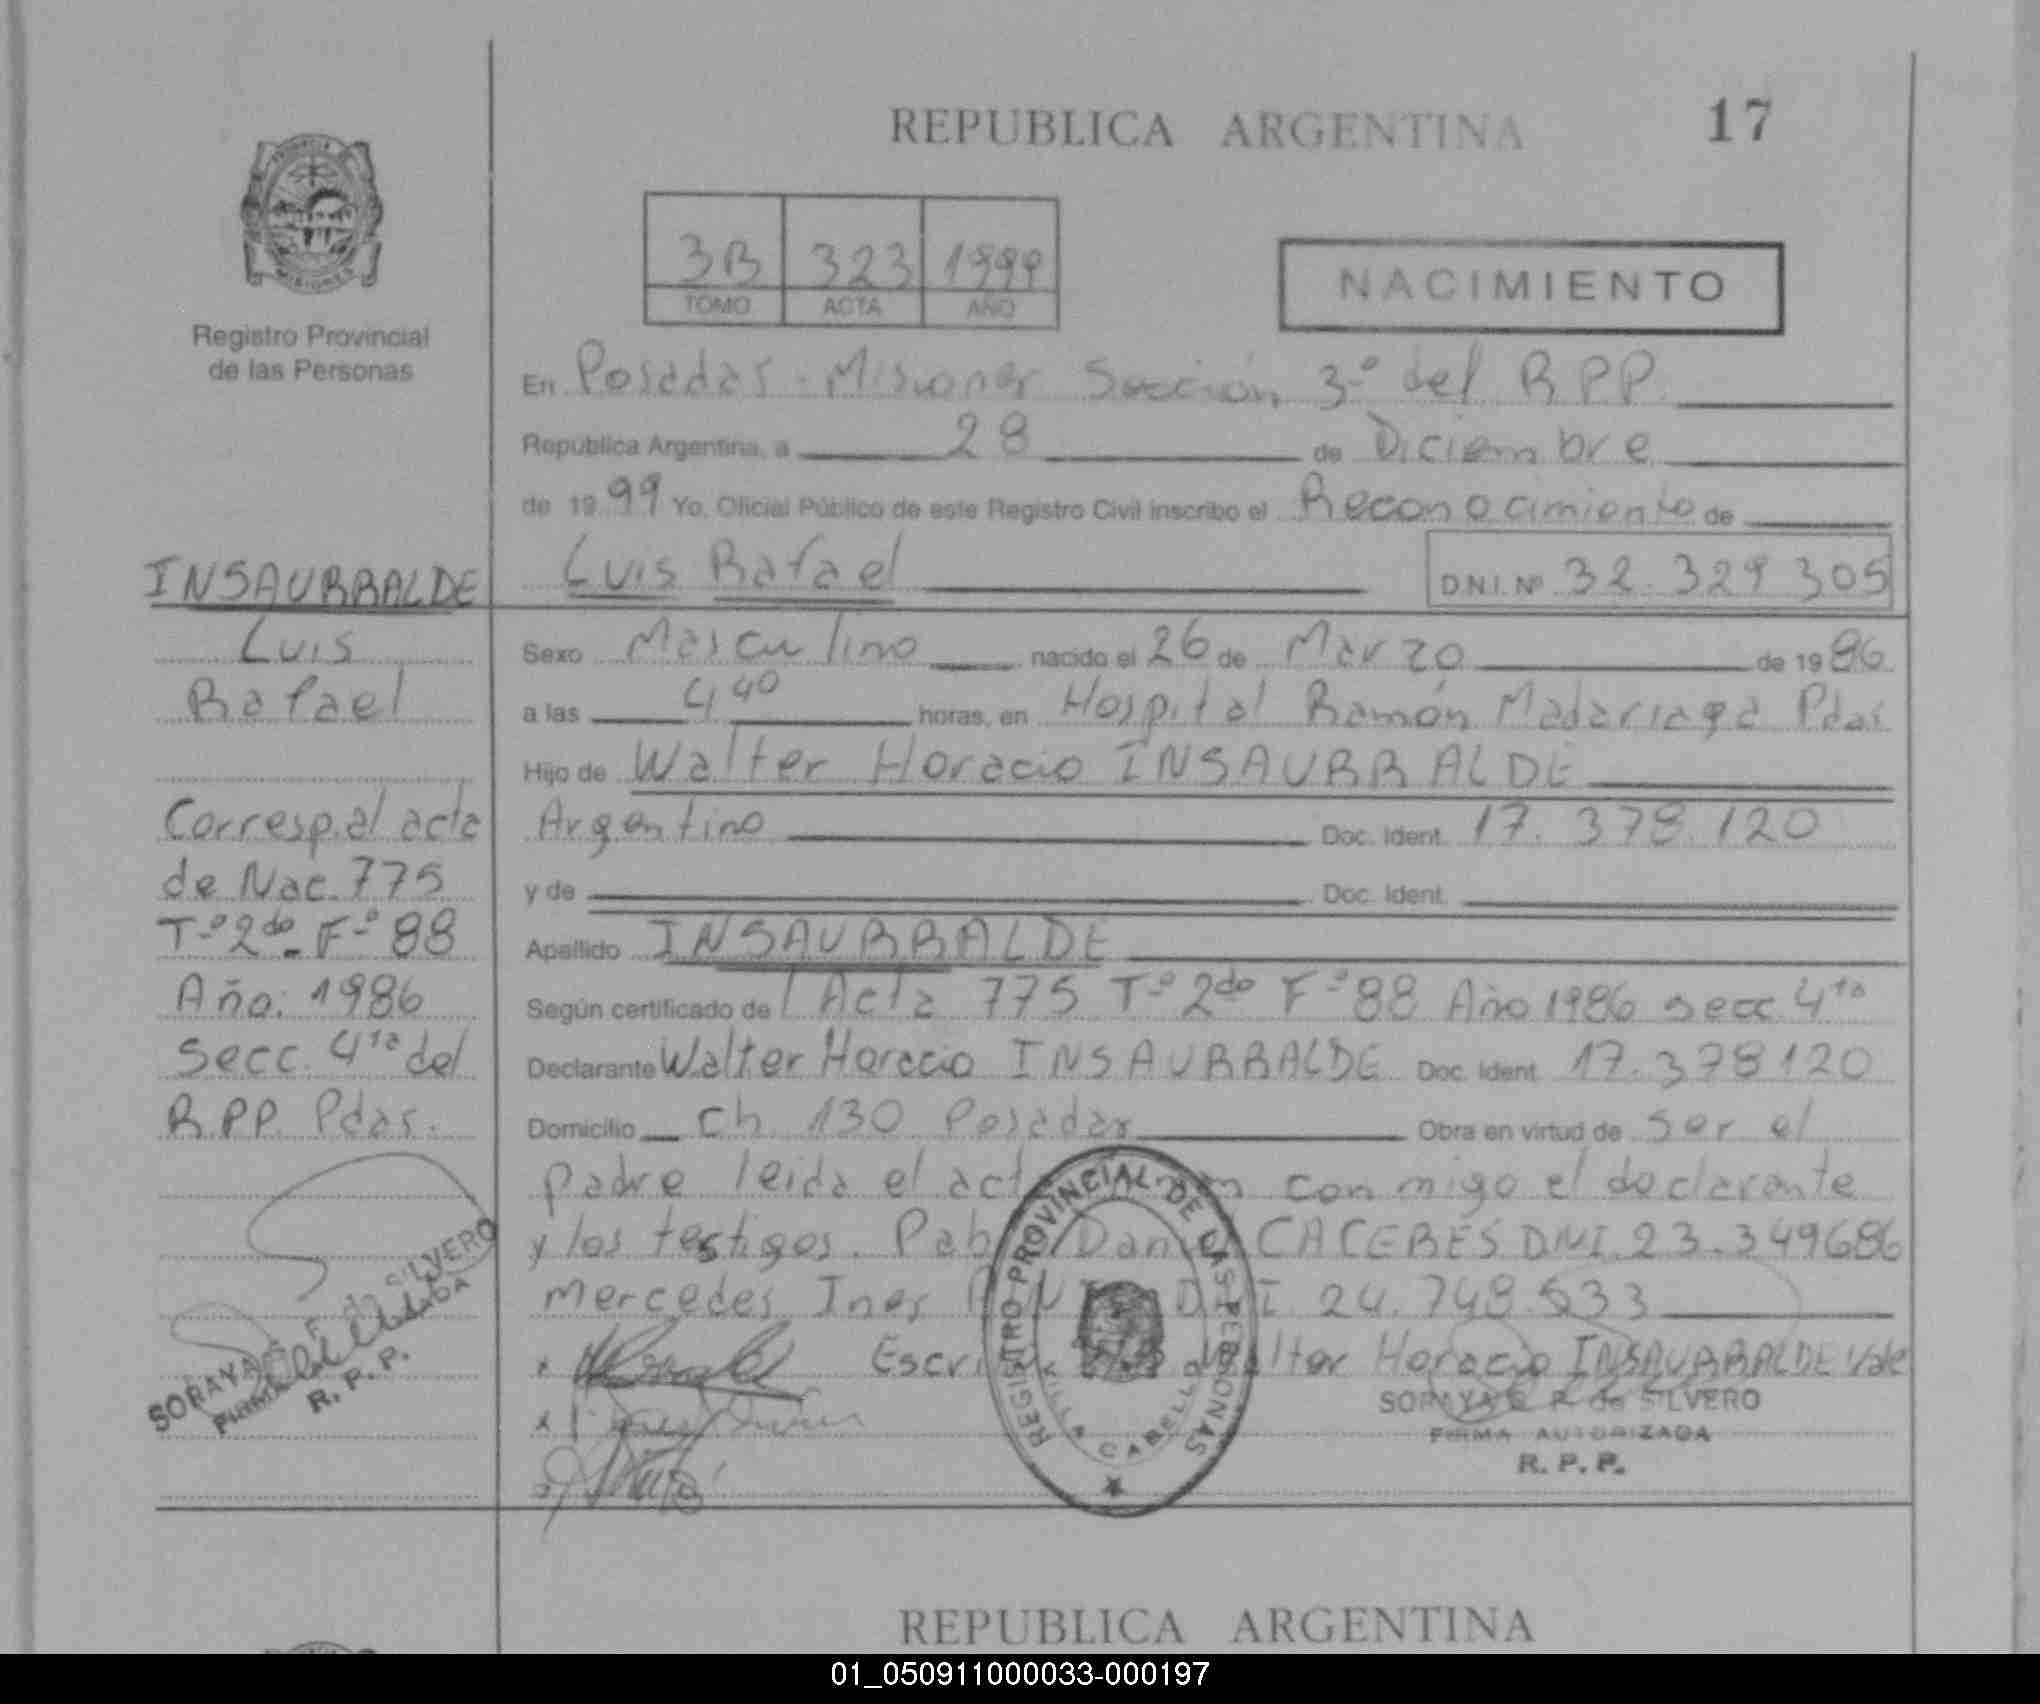 REPUBLICA ARGENTINA
17
3B 323 1999
TOMO ACTA AÑO
NACIMIENTO
Registro Provincial
de las Personas
En Posadas - Misiones Sección 3º del R.P.P.
República Argentina, a 28 de Diciembre
de 1999 Yo, Oficial Público de este Registro Civil inscribo el Reconocimiento de
Luis Rafael D.N.I. Nº 32.329 305
Sexo Masculino nacido el 26 de Marzo de 1986
a las 4 40 horas, en Hospital Ramón Madariaga Pdas
Hijo de Walter Horacio INSAURRALDE
Argentino Doc. Ident. 17.378.120
y de Doc. Ident.
Apellido INSAURRALDE
Según certificado de Acta 775 Tº 2do Fº 88 Año 1986 secc. 4ta
Declarante Walter Horacio INSAURRALDE Doc. Ident. 17.378120
Domicilio ch 130 Posadas Obra en virtud de ser el
padre leida el conmigo el declarante
y los testigos. CACERES DNI 23.349686
Mercedes Ines 24.748.533
Walter Horacio INSAURRALDE Vale
SORAYA E. R. de SILVERO
FIRMA AUTORIZADA
R. P. P.
REGISTRO PROVINCIAL DE LAS PERSONAS
VILLA CABELLO
INSAURRALDE
Luis
Rafael
Corresp. al acta
de Nac. 775
Tº 2do - Fº 88
Año: 1986
secc. 4ta del
R.P.P. Pdas.
SORAYA de SILVERO
R. P. P.
REPUBLICA ARGENTINA
01_050911000033-000197